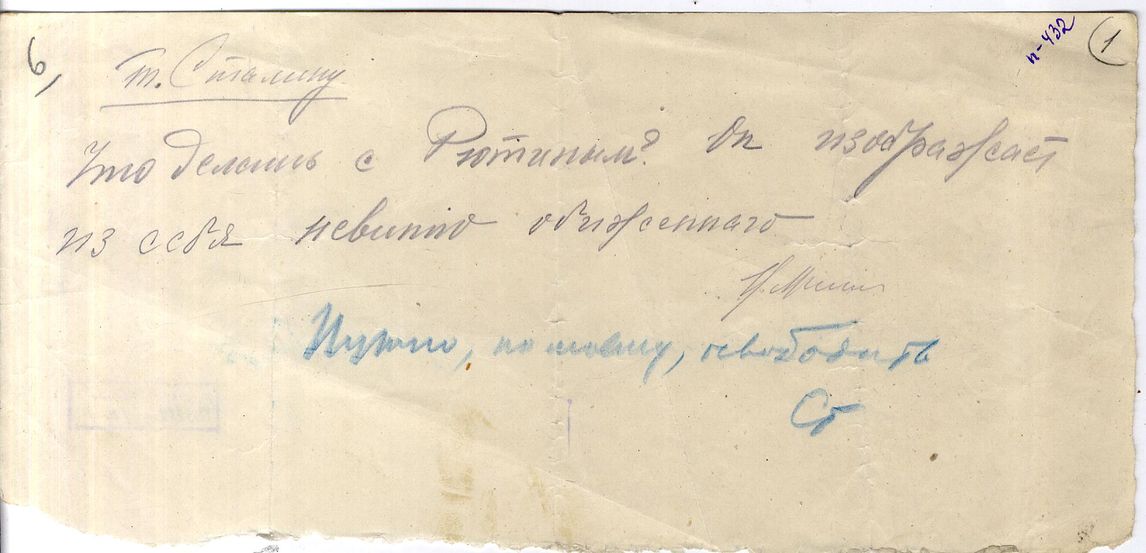 6,
п-432
1
т. Сталину
Что делать с Рютиным? Он изображает
из себя невинно обиженного
Нужно, по-моему, освободить
Ст